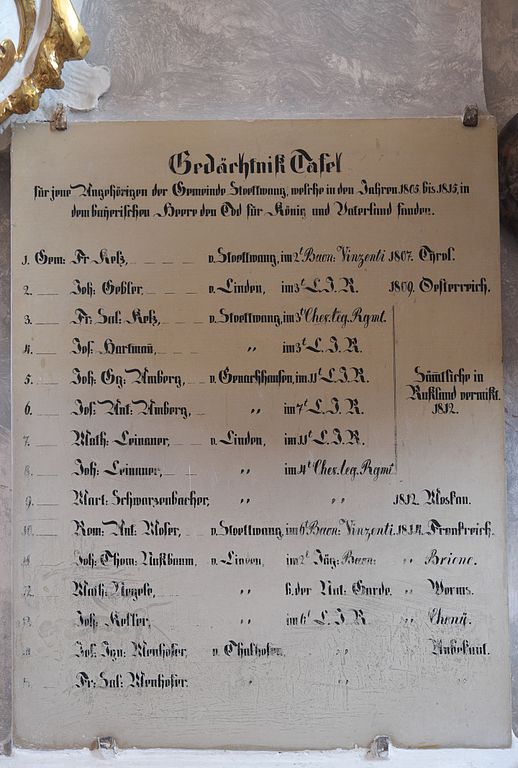 Gedächtniß Tafel
für jene Angehörigen der Gemeinde Stoettwang, welche in den Jahren 1805 bis 1815, in
dem bayerischen Heere den Tod für König und Vaterland fanden.
1. Gem: Fr. Keß, v. Stoettwang, im 2t Baon: Vinzenti 1807. Tyrol.
2. Joh: Gebler, v. Linden, im 3t L. I. R. 1809. Oesterreich.
3. Fr: Sal: Keß, v. Stoettwang, im 3t Chev. leg. Rgmt.
4. Jos: Hartmañ, " im 3t L. I. R.
5. Joh: Gg: Amberg, v. Genachhausen, im 11t L. I. R.
6. Jos: Ant: Amberg, " im 7t L. I. R.
7. Math: Leinauer, v. Linden, im 11t L. I. R.
8. Joh: Leinauer, " im 4t Chev. leg. Rgmt
Sämtliche in
Rußland vermißt.
1812.
9. Mart: Schwarzenbacher, " " 1812. Moskau.
10. Rom: Ant: Moser, v. Stoettwang, im 6t Baon: Vinzenti. 1814. Frankreich.
11. Joh: Thom: Nußbaum, v. Linden, im 2t Jäg: Baon: " Brienc.
12. Math: Negele, " b. der Nat: Garde. " Worms.
13. Joh: Keller, " im 6t L. I. R. "
Jos: Ign: Menhofer, v. Thalhofen, " Unbekant.
Fr: Sal: Menhofer. " "